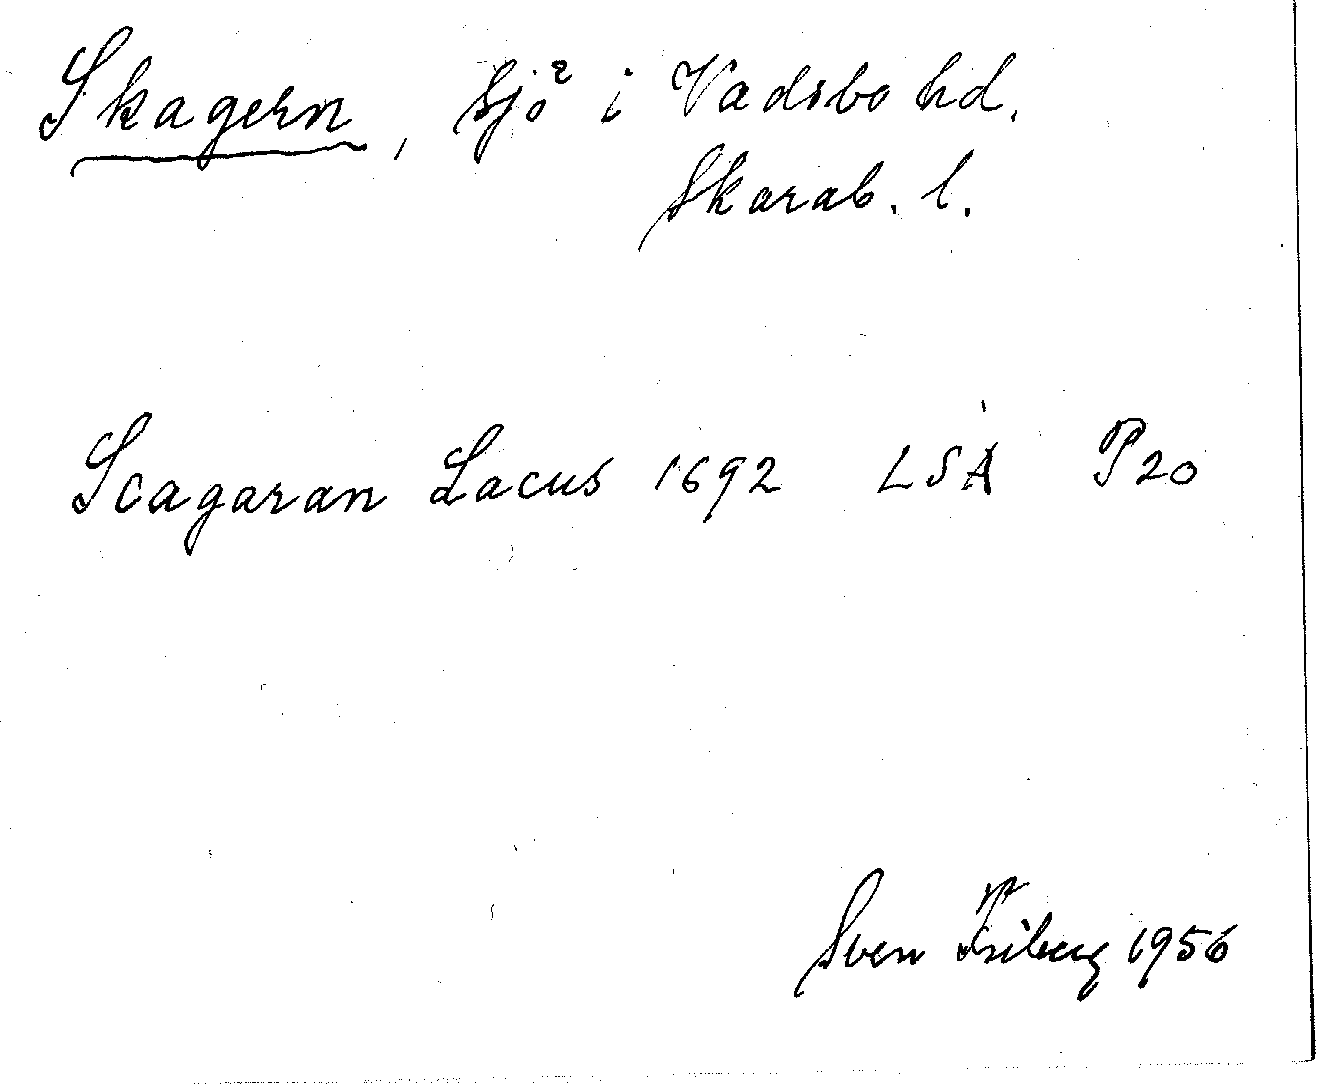 Skagern, sjö i Vadsbo hd.
Skarab. l.
Scagaran Lacus 1692 LSA P20
Sven Friberg 1956